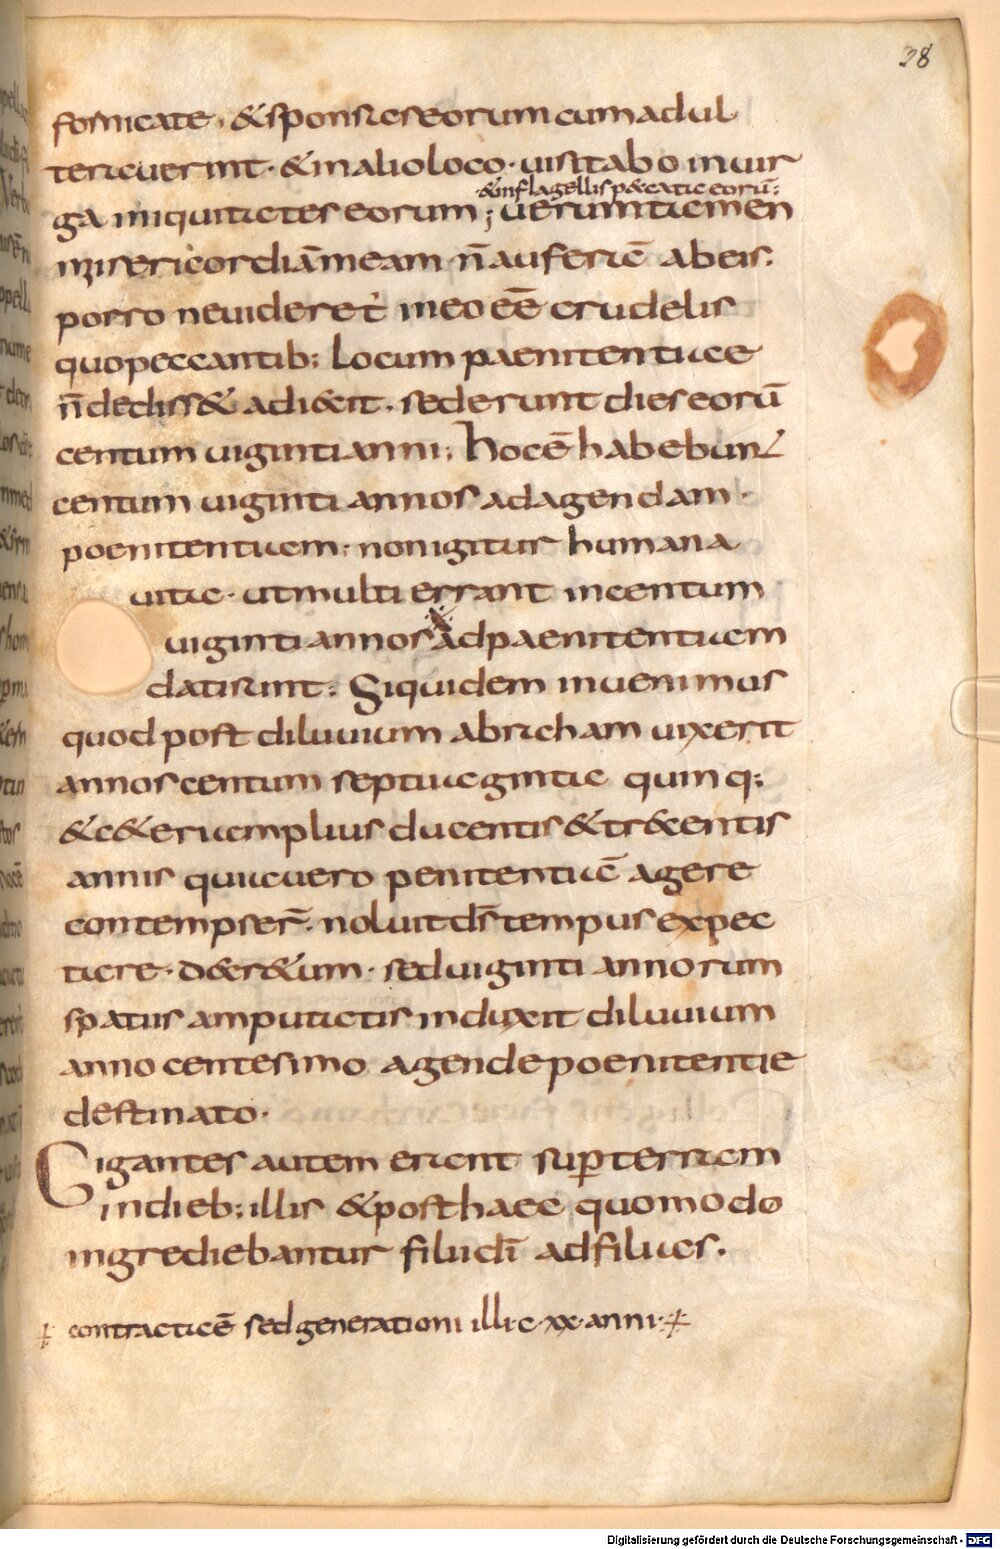 38
fornicate, & sponsae eorum cum adul
terauerint· & in alio loco· uisitabo in uir
& in flagellis p&cata eorū:
ga iniquitates eorum; uerumtamen
misericordiā meam n̄ auferā ab eis:
porro ne uideret᷑ in eo eē crudelis
quo peccantib; locum paenitentiae
n̄ dediss& adiecit· sed erunt dies eorū
centum uiginti anni; hoc ē habebunt
centum uiginti annos ad agendam·
poenitentiam: non igitur humana
uita· ut multi errant in centum
uiginti annos ad paenitentiam
dati sint: Siquidem inuenimus
quod post diluuium abraham uixerit
annos centum septuaginta quinq;
& c&eri amplius ducentis & trecentis
annis quia uero penitentiā agere
contempser̄· noluit d̄s tempus expec
tare· decr&um· sed uiginti annorum
spatiis amputatis induxit diluuium
anno centesimo agende poenitentie
destinato·
Gigantes autem erant sup̄ terram
in dieb; illis & post haec quomodo
ingrediebantur filii dī ad filias·
contracta ē sed generationi illi· c· xx· anni·
Digitalisierung gefördert durch die Deutsche Forschungsgemeinschaft - DFG